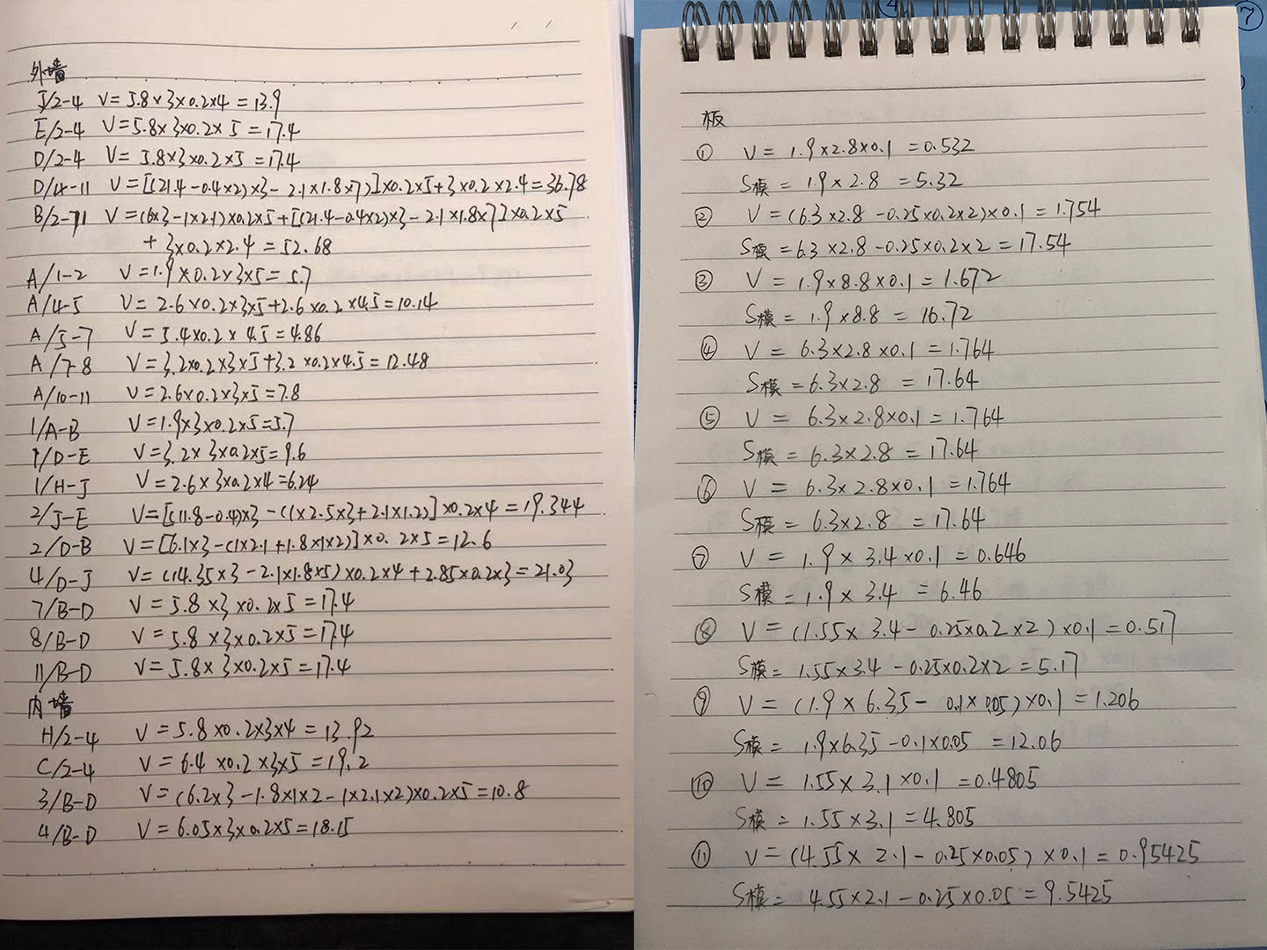 外墙
J/2-4 V=5.8×3×0.2×4=13.9
E/2-4 V=5.8×3×0.2×5=17.4
D/2-4 V=5.8×3×0.2×5=17.4
D/4-11 V=[(21.4-0.4×2)×3-2.1×1.8×7]×0.2×5+3×0.2×2.4=36.78
B/2-11 V=(6×3-1×2.1)×0.2×5+[(21.4-0.4×2)×3-2.1×1.8×7]×0.2×5
+3×0.2×2.4=52.68
A/1-2 V=1.9×0.2×3×5=5.7
A/4-5 V=2.6×0.2×3×5+2.6×0.2×4.5=10.14
A/5-7 V=5.4×0.2×4.5=4.86
A/7-8 V=3.2×0.2×3×5+3.2×0.2×4.5=12.48
A/10-11 V=2.6×0.2×3×5=7.8
1/A-B V=1.9×3×0.2×5=5.7
1/D-E V=3.2×3×0.2×5=9.6
1/H-J V=2.6×3×0.2×4=6.24
2/J-E V=[(11.8-0.4)×3-(1×2.5×3+2.1×1.2)]×0.2×4=19.344
2/D-B V=[6.1×3-(1×2.1+1.8×1×2)]×0.2×5=12.6
4/D-J V=(14.35×3-2.1×1.8×5)×0.2×4+2.85×0.2×3=21.03
7/B-D V=5.8×3×0.2×5=17.4
8/B-D V=5.8×3×0.2×5=17.4
11/B-D V=5.8×3×0.2×5=17.4
内墙
H/2-4 V=5.8×0.2×3×4=13.92
C/2-4 V=6.4×0.2×3×5=19.2
3/B-D V=(6.2×3-1.8×1×2-1×2.1×2)×0.2×5=10.8
4/B-D V=6.05×3×0.2×5=18.15
板
① V=1.9×2.8×0.1=0.532
S模=1.9×2.8=5.32
② V=(6.3×2.8-0.25×0.2×2)×0.1=1.754
S模=6.3×2.8-0.25×0.2×2=17.54
③ V=1.9×8.8×0.1=1.672
S模=1.9×8.8=16.72
④ V=6.3×2.8×0.1=1.764
S模=6.3×2.8=17.64
⑤ V=6.3×2.8×0.1=1.764
S模=6.3×2.8=17.64
⑥ V=6.3×2.8×0.1=1.764
S模=6.3×2.8=17.64
⑦ V=1.9×3.4×0.1=0.646
S模=1.9×3.4=6.46
⑧ V=(1.55×3.4-0.25×0.2×2)×0.1=0.517
S模=1.55×3.4-0.25×0.2×2=5.17
⑨ V=(1.9×6.35-0.1×0.05)×0.1=1.206
S模=1.9×6.35-0.1×0.05=12.06
⑩ V=1.55×3.1×0.1=0.4805
S模=1.55×3.1=4.805
⑪ V=(4.55×2.1-0.25×0.05)×0.1=0.95425
S模=4.55×2.1-0.25×0.05=9.5425
⑦